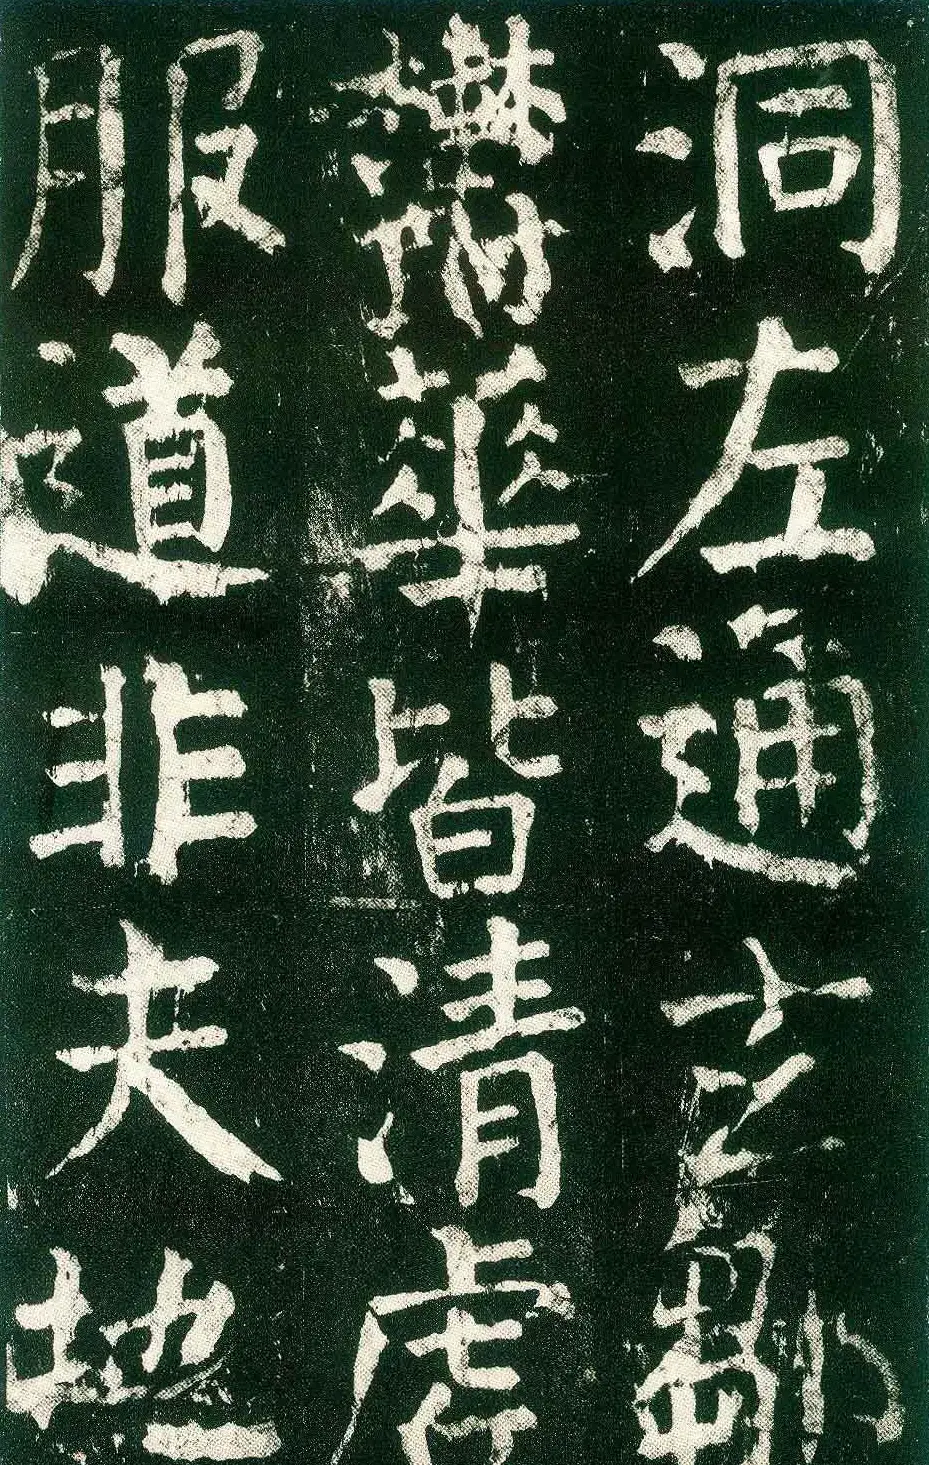 洞左通玄
華皆清虛
服道非夫地